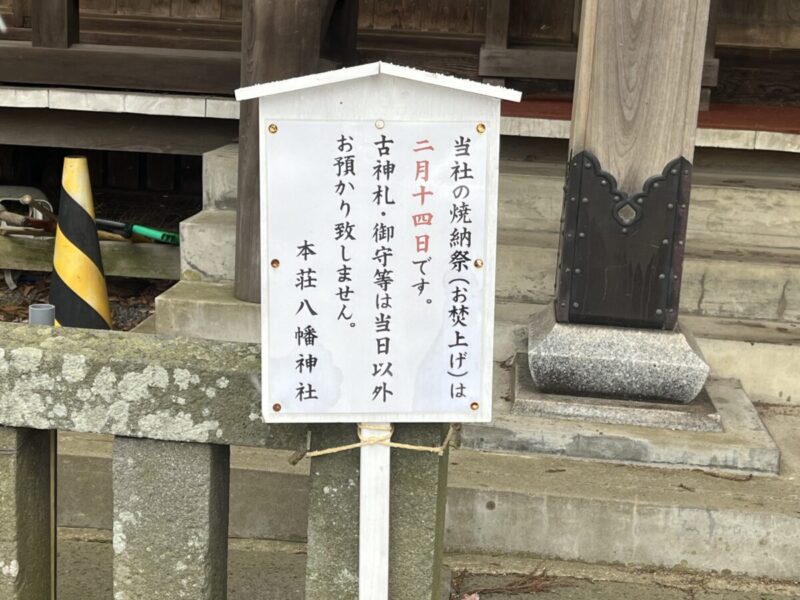 当社の焼納祭(お焚上げ)は
二月十四日です。
古神札・御守等は当日以外
お預かり致しません。
本荘八幡神社